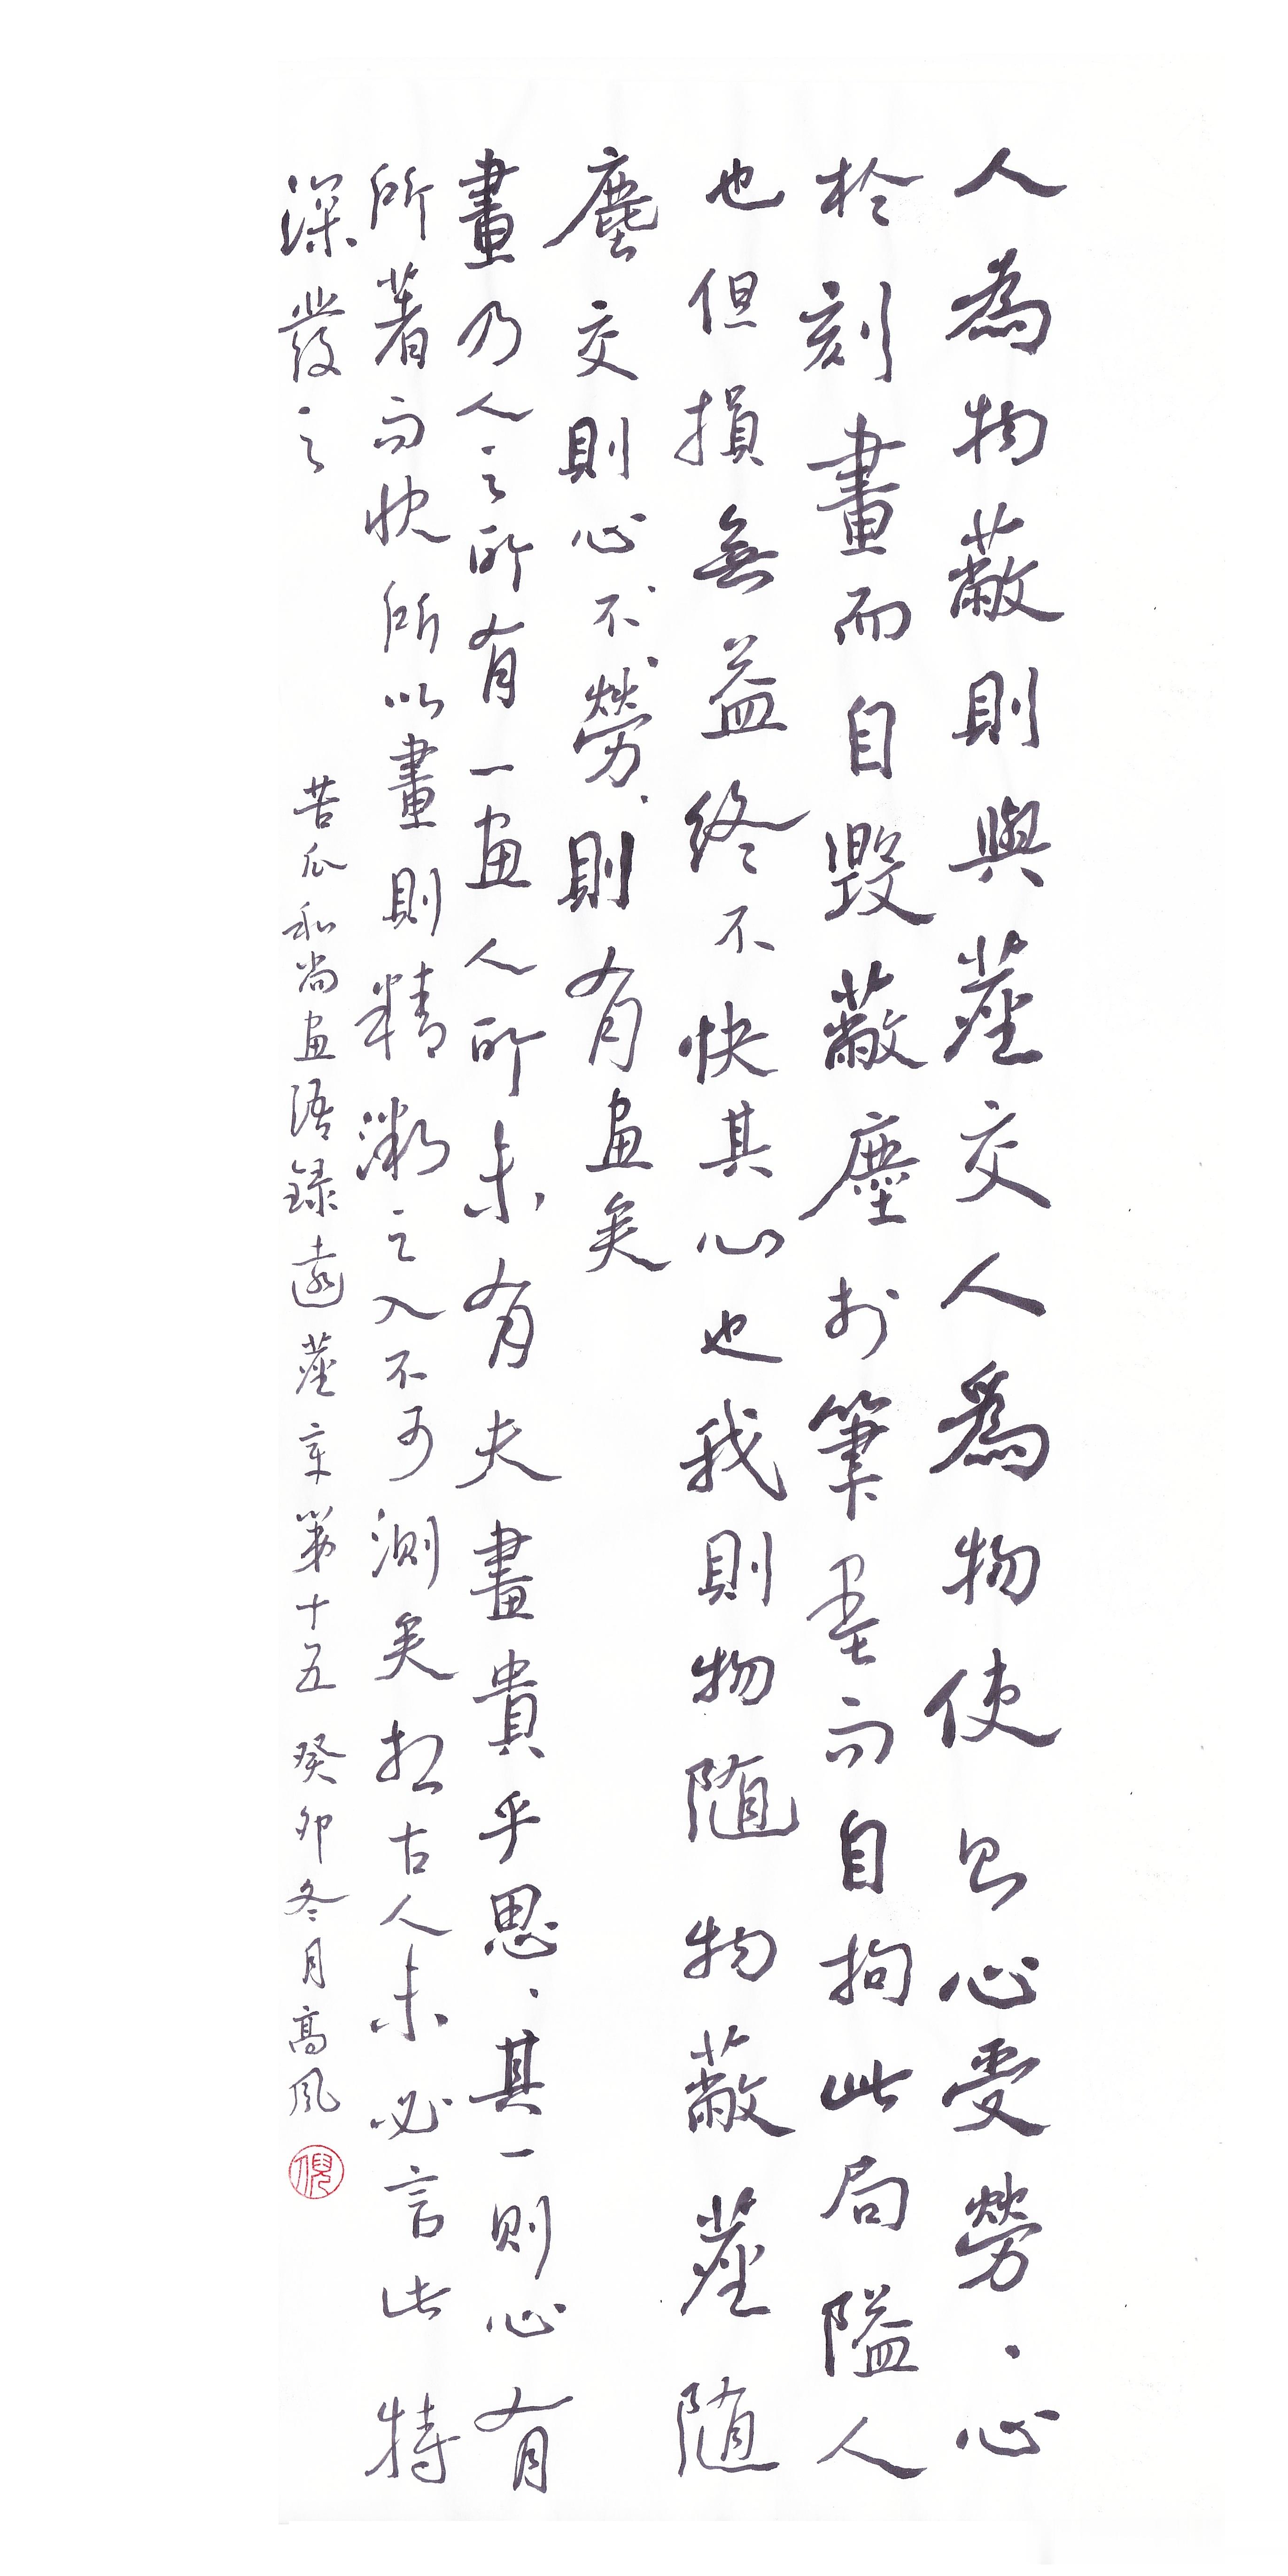 人為物蔽則與塵交人為物使則心受勞、心
於刻畫而自毀蔽塵於筆墨而自拘此局隘人
也但損無益終不快其心也我則物随物蔽塵随
塵交則心、不、勞、則有画矣
畫乃人之所有一画人所未有夫畫貴乎思、其一則心有
所著而快所以畫則精微之入不可測矣想古人未必言此特
深發之 苦瓜和尚画語録遠塵章第十五 癸卯冬月高風
倪